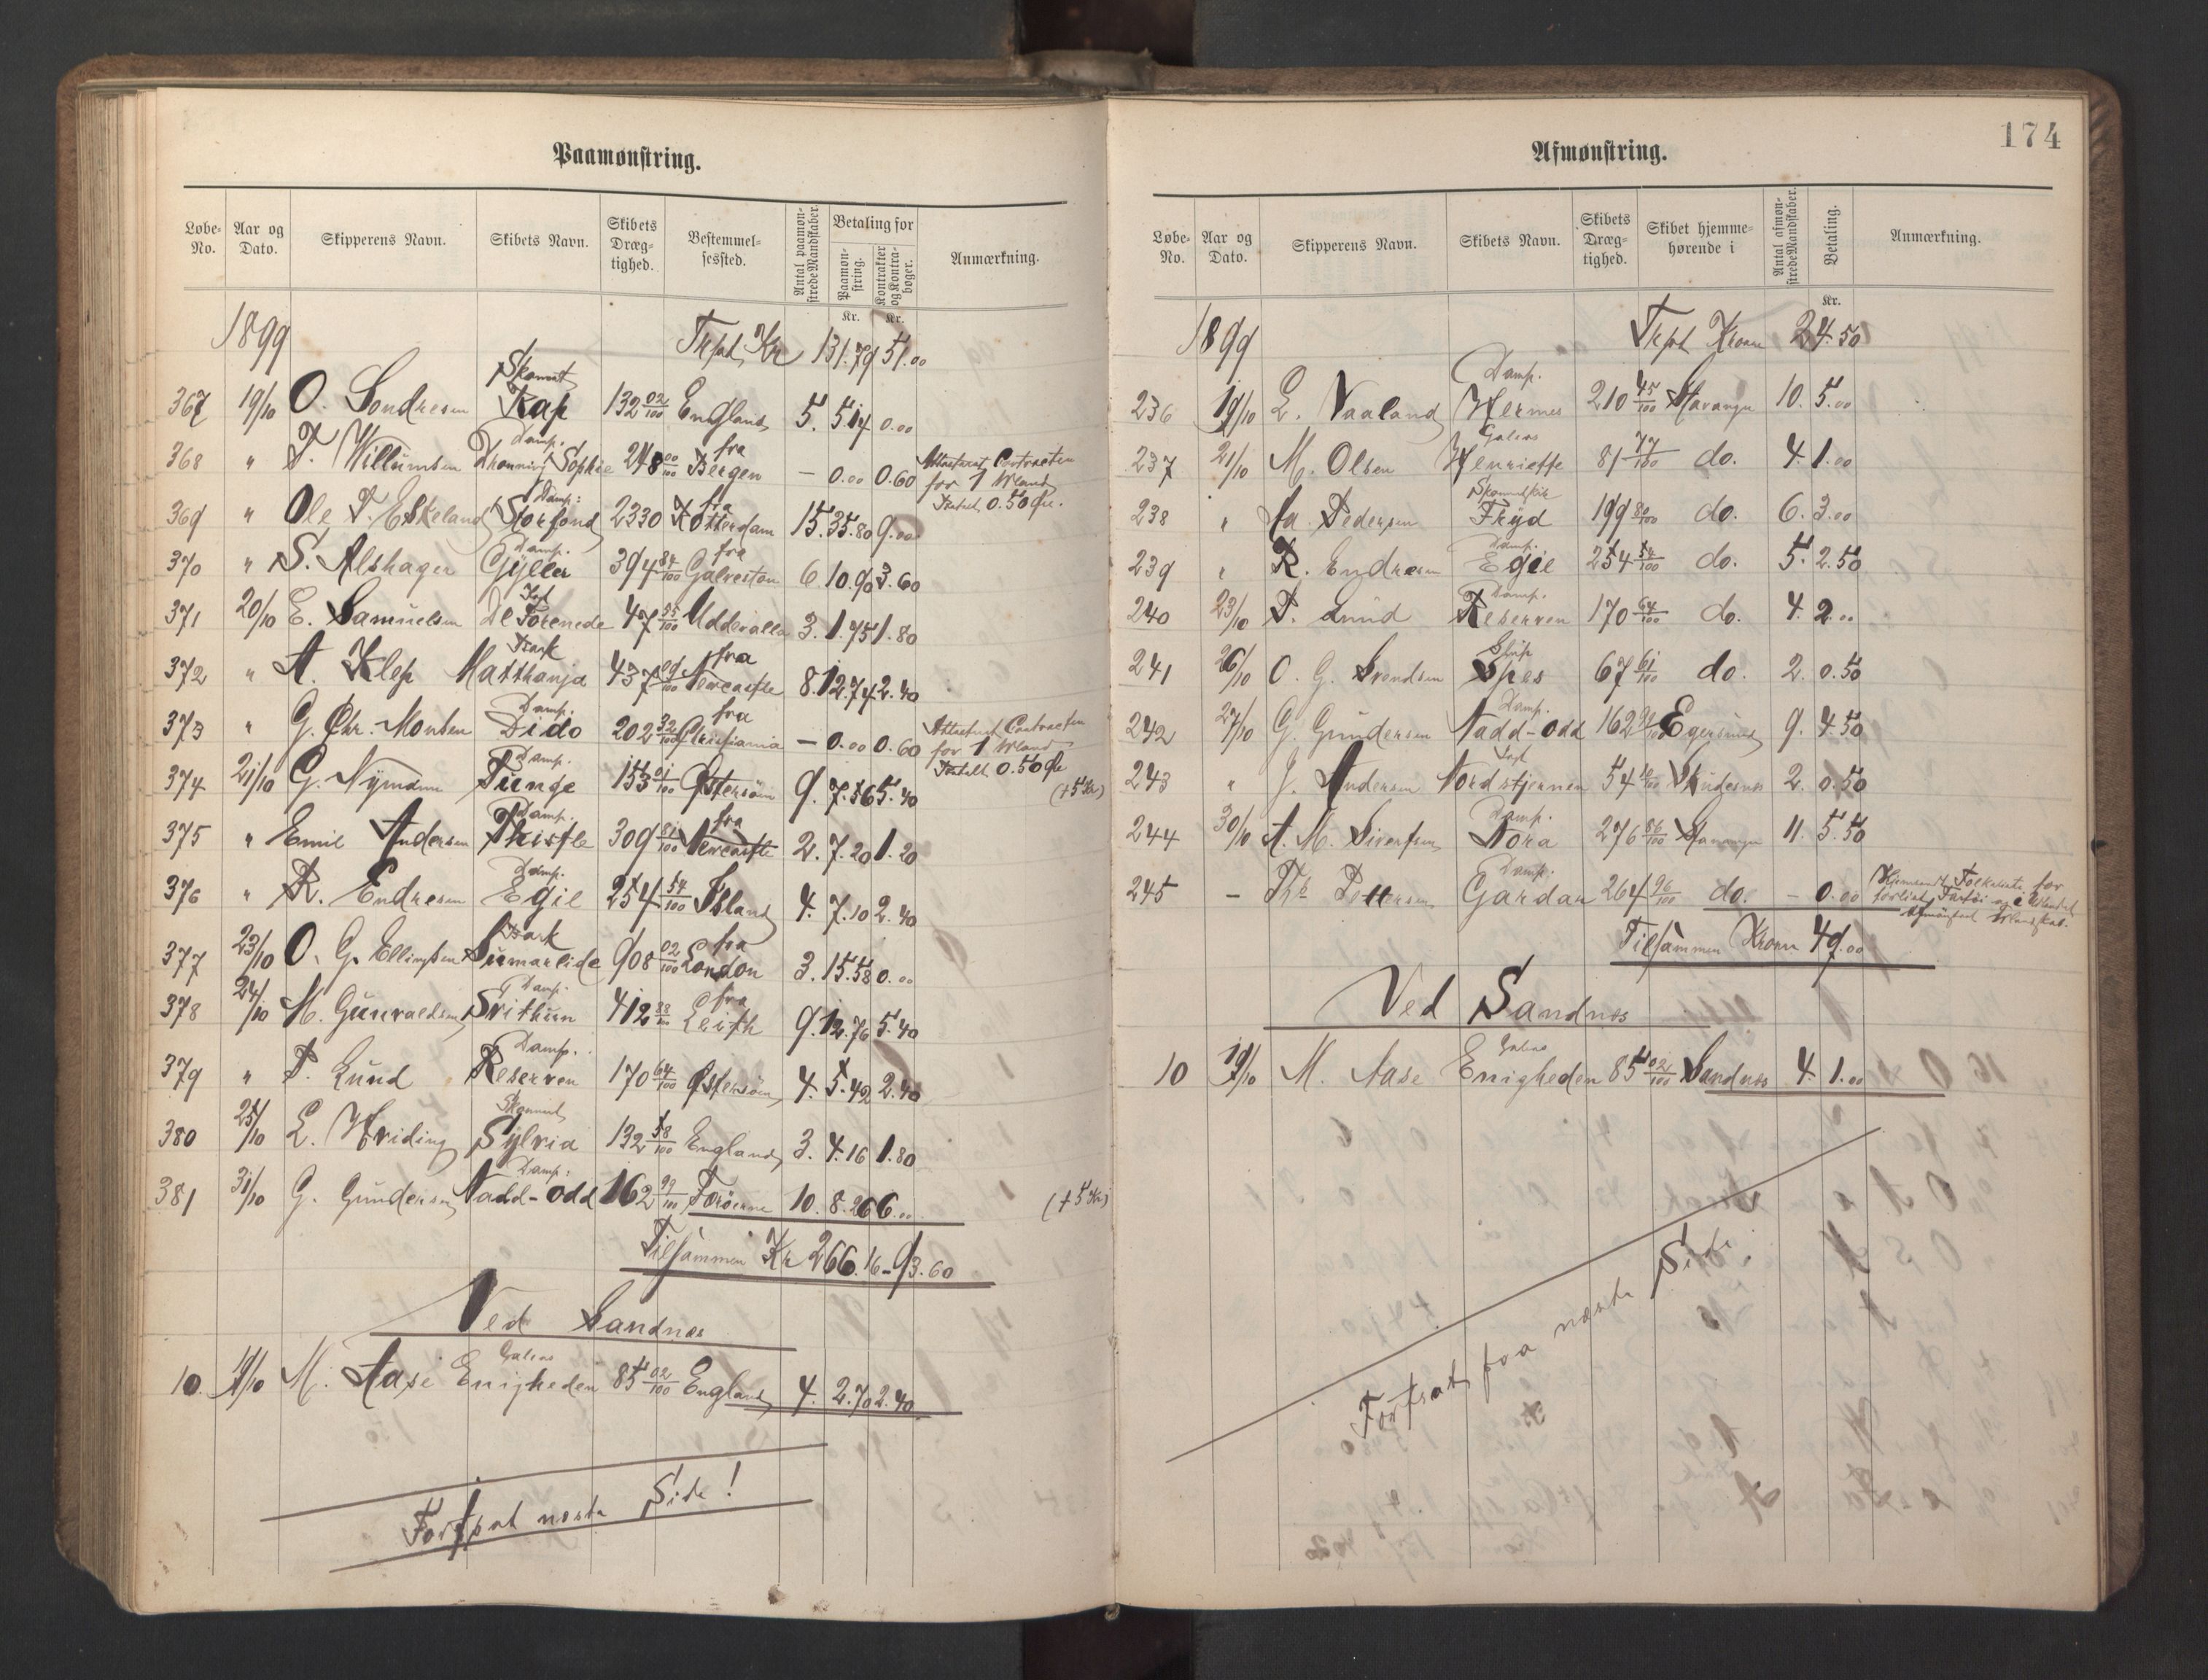 Paamønstring.
Løbe-No. Aar og Dato. Skipperens Navn. Skibets Navn. Skibets Dræg-tighed. Bestemmel-sessted. Antal paamøn-strede Mandskaber. Betaling for Paamøn-string. Kontrakter og Kontra-bøger. Anmærkning.
Kr. Kr.
1899 Trspt. Kr 131.79 51.00
Skonnert
367 19/10 O. Sondresen Kap 132 02/100 England 5. 5.14 0.00
Damp. fra
368 " T. Willumsen Dronning Sophie 248 00/100 Bergen — 0.00 0.60 Attesteret Contracten for 1 Mand Betalt 0.50 Øre.
Damp: fra
369 " Ole T. Eskeland Storfond 2330 Rotterdam 15. 35.80 9.00
Damp. fra
370 " S. Alshager Gyller 394 84/100 Galveston 6. 10.90 3.60
371 20/10 E. Samuelsen De Forenede 47 55/100 Uddevalla 3. 1.75 1.80
Bark fra
372 " A. Klep Matthanja 437 Newcastle 8. 12.74 2.40
Damp. fra
373 " G. Chr. Monsen Dido 202 32/100 Christiania — 0.00 0.60 Attesteret Contracten for 1 Mand Betalt 0.50 Øre
Damp.
374 21/10 G. Nymann Tunge 153 01/100 Østersøen 9. 7.56 5.40 (+5 Kr)
Damp. fra
375 " Emil Andersen Thistle 309 81/100 Newcastle 2. 7.20 1.20
Damp.
376 " R. Endresen Egil 254 54/100 Island 4. 7.10 2.40
Bark fra
377 23/10 O. G. Ellingsen Sumarlide 908 02/100 London 3. 15.58 0.00
Damp. fra
378 24/10 M. Gunvaldsen Svithun 412 88/100 Leith 9. 12.76 5.40
Damp.
379 " T. Lund Reserven 170 64/100 Østersøen 4. 5.42 2.40
Skonnert
380 25/10 L. Hviding Sylvia 132 58/100 England 3. 4.16 1.80
Damp:
381 31/10 G. Gundersen Nadd-odd 162 99/100 Færøerne 10. 8.26 6.00 (+5 Kr)
Tilsammen Kr 266.16 - 93.60
Ved Sandnes
Galeas
10. 19/10 M. Aase Enigheden 85 02/100 England 4. 2.70 2.40
Fortsat næste Side!
174
Afmønstring.
Løbe-No. Aar og Dato. Skipperens Navn. Skibets Navn. Skibets Dræg-tighed. Skibet hjemme-hørende i Antal afmøn-strede Mandskaber. Betaling. Anmærkning.
Kr.
1899 Trspt Kroner 24.50
Damp.
236 19/10 L. Vaaland Hermes 210 45/100 Stavanger 10. 5.00
Galeas
237 21/10 M. Olsen Henriette 81 77/100 do. 4. 1.00
238 " Pedersen Fryd 199 80/100 do. 6. 3.00
Damp.
239 " R. Endresen Egil 254 54/100 do. 5. 2.50
Damp.
240 23/10 T. Lund Reserven 170 64/100 do. 4. 2.00
241 26/10 O. G. Svendsen Spes 67 61/100 do. 2. 0.50
Damp.
242 27/10 G. Gundersen Nadd-odd 162 99/100 Egersund 9. 4.50
243 " J. Andersen Nordstjernen 54 Skudesnes 2. 0.50
Damp.
244 30/10 A. M. Sivertsen Nora 276 86/100 Stavanger 11. 5.50
Damp.
245 — Pettersen Gardar 264 96/100 do. — 0.00 for forlist Fartøi og i Udlandet afmønstret Mandskab.
Tilsammen Kroner 49.00
Ved Sandnes
Galeas
10 19/10 M. Aase Enigheden 85 02/100 Sandnes 4. 1.00
Fortsat paa næste Side.